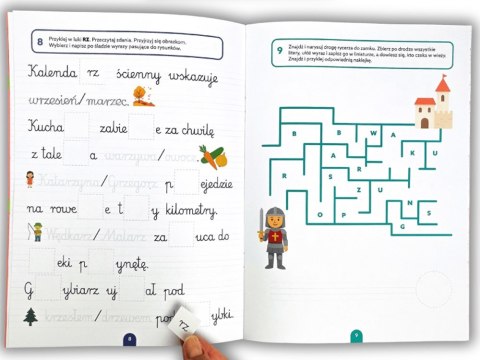 8 Przyklej w luki RZ. Przeczytaj zdania. Przyjrzyj się obrazkom.
Wybierz i napisz po śladzie wyrazy pasujące do rysunków.
Kalenda rz ścienny wskazuje
wrzesień/marzec.
Kucha zabie e za chwilę
z tale a warzywa/owoce.
Katarzyna/Grzegorz p ejedzie
na rowe e t y kilometry.
Wędkarz/Malarz za uca do
eki p ynętę.
G ybiarz uj ał pod
krzesłem/drzewem ybki.
rz
8
9 Znajdź i narysuj drogę rycerza do zamku. Zbierz po drodze wszystkie
litery, ułóż wyraz i zapisz go w liniaturze, a dowiesz się, kto czeka w wieży.
Znajdź i przyklej odpowiednią naklejkę.
B B W A
A K U
S R
Z U
R O P N S
G
9